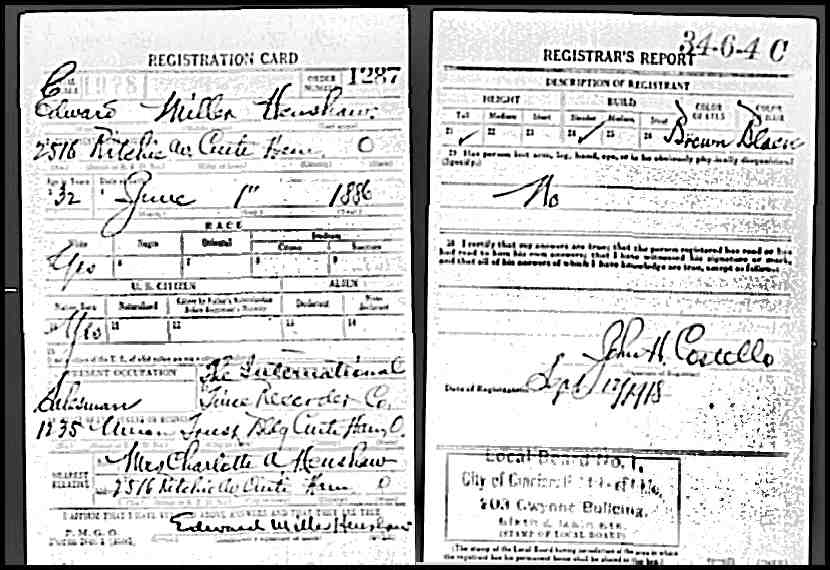 REGISTRATION CARD
ORDER NUMBER 1287
Edward Miller Henshaw
2516 Ritchie Av. Ham. O
32 June 1" 1886
RACE
White Negro Oriental
Citizen
5 6 7 8 9
Yes
U. S. CITIZEN ALIEN
Native Born Naturalized Declarant
10 11 12 13 14
Yes
PRESENT OCCUPATION
The International
Salesman Time Recorder Co.
1235 Union Trust Bldg Ham, O.
NEAREST RELATIVE
Mrs Charlotte A Henshaw
2516 Ritchie Av Ham O
I AFFIRM THAT I HAVE ABOVE ANSWERS AND THAT THEY ARE TRUE
P. M. G. O.
Edward Miller Henshaw
34-6-4 C
REGISTRAR'S REPORT
DESCRIPTION OF REGISTRANT
HEIGHT BUILD COLOR OF EYES COLOR OF HAIR
Tall Medium Short Slender Medium Stout
21 22 23 24 25 26 Brown Black
29 Has person lost arm, leg, hand, eye, or is he obviously physically disqualified?
(Specify.)
No
30 I certify that my answers are true; that the person registered has read or has
had read to him his own answers; that I have witnessed his signature or mark,
and that all of his answers of which I have knowledge are true, except as follows:
John H. Costello
Date of Registration Sept 12/1918
Local Board No. 1,
City of Cincinnati
203 Gwynne Building,
(STAMP OF LOCAL BOARD)
(The stamp of the Local Board having jurisdiction of the area in which
the registrant has his permanent home shall be placed in this box.)